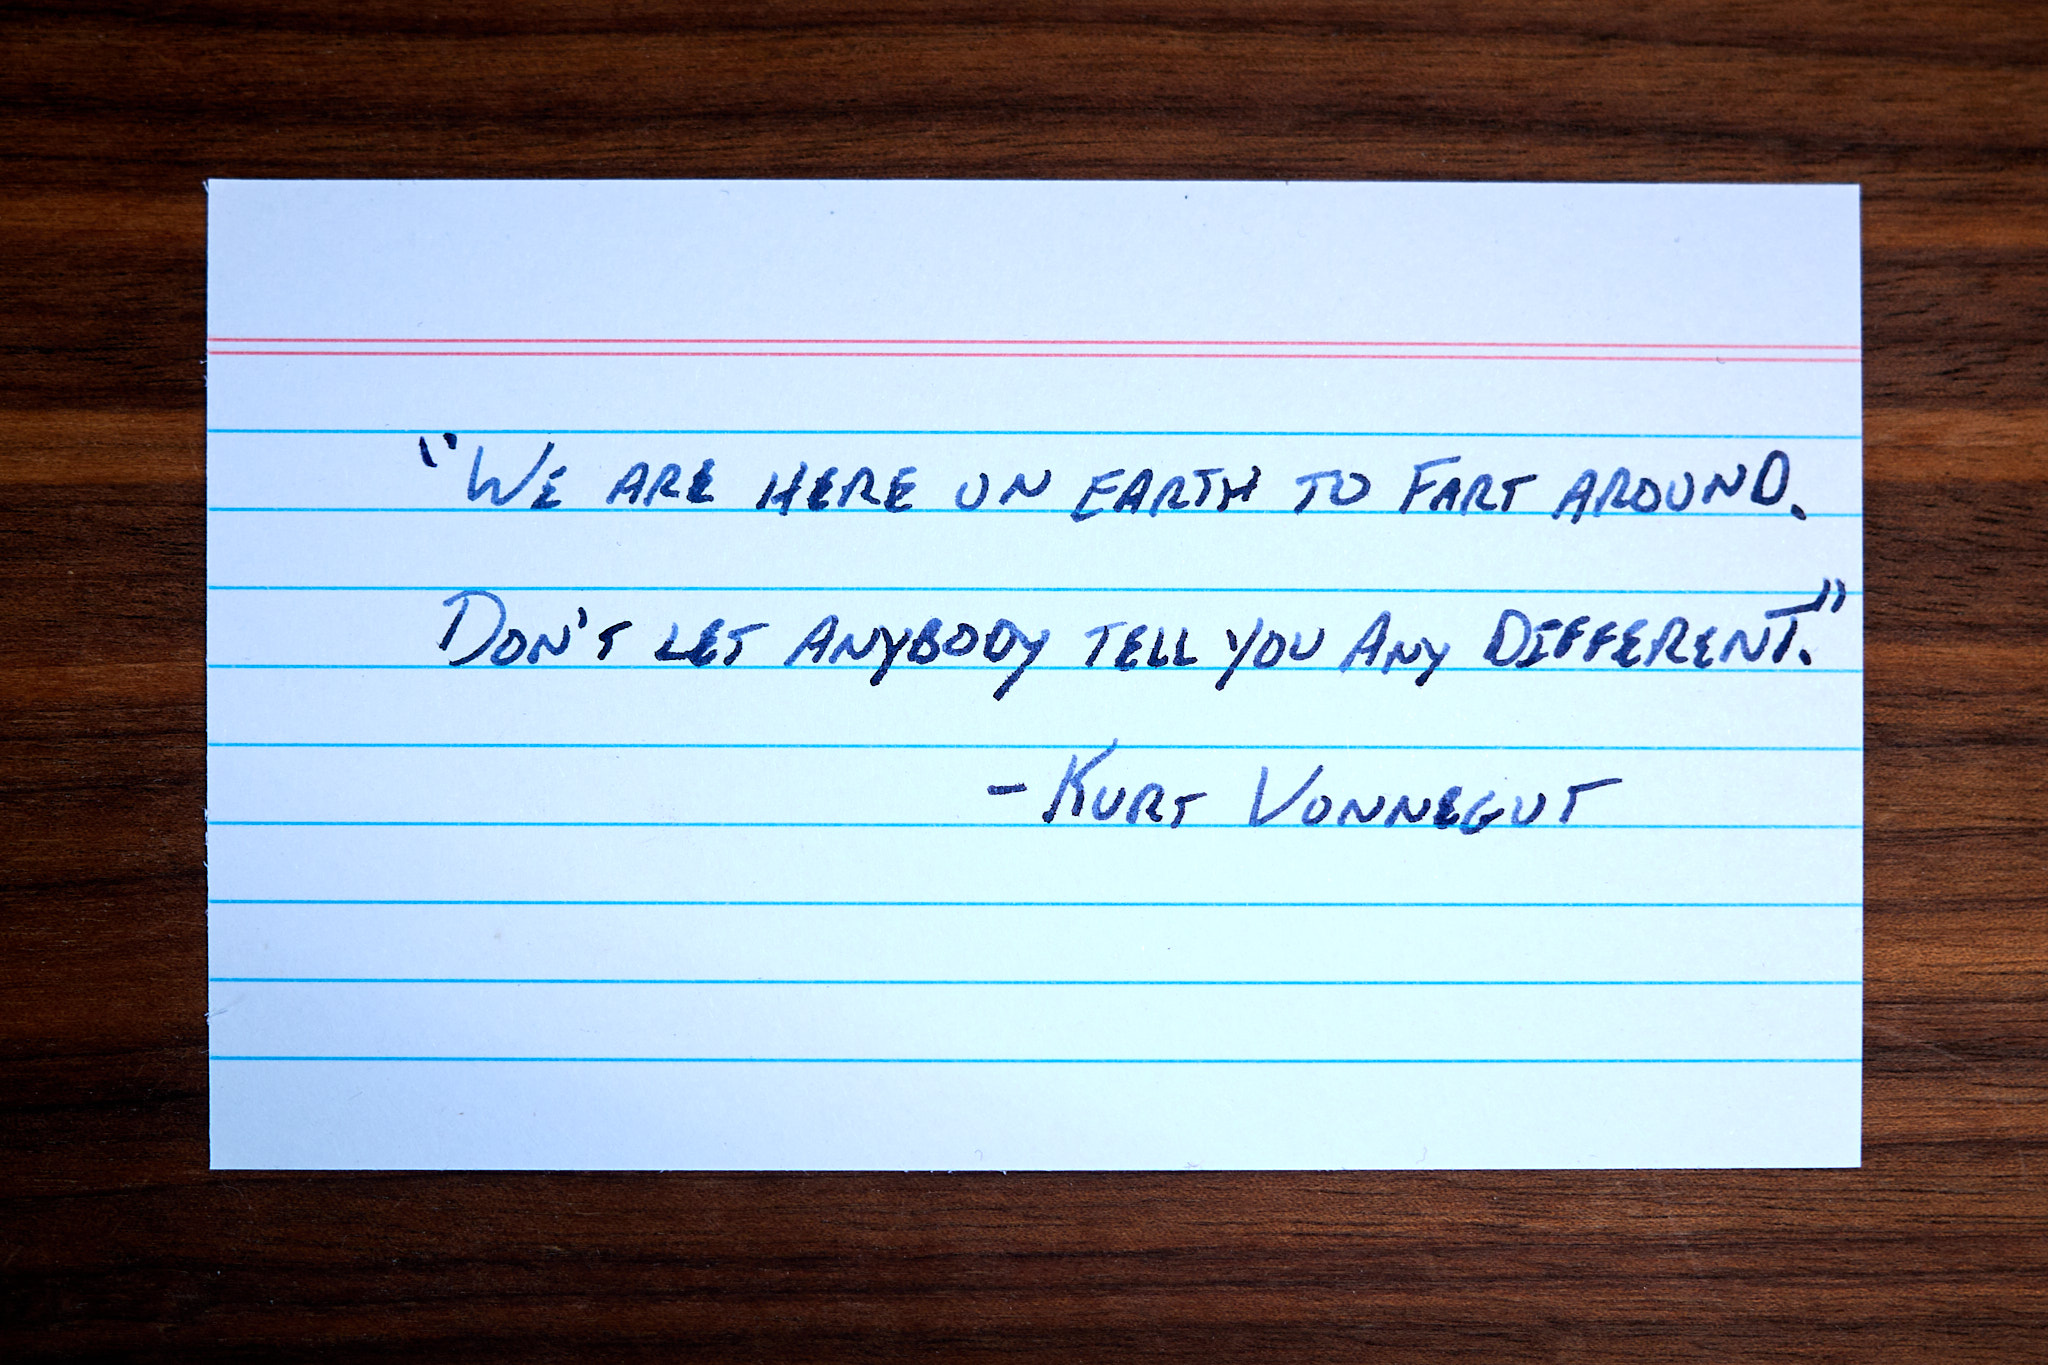 "We are here on Earth to Fart around.
Don't let Anybody tell you Any Different."
- Kurt Vonnegut